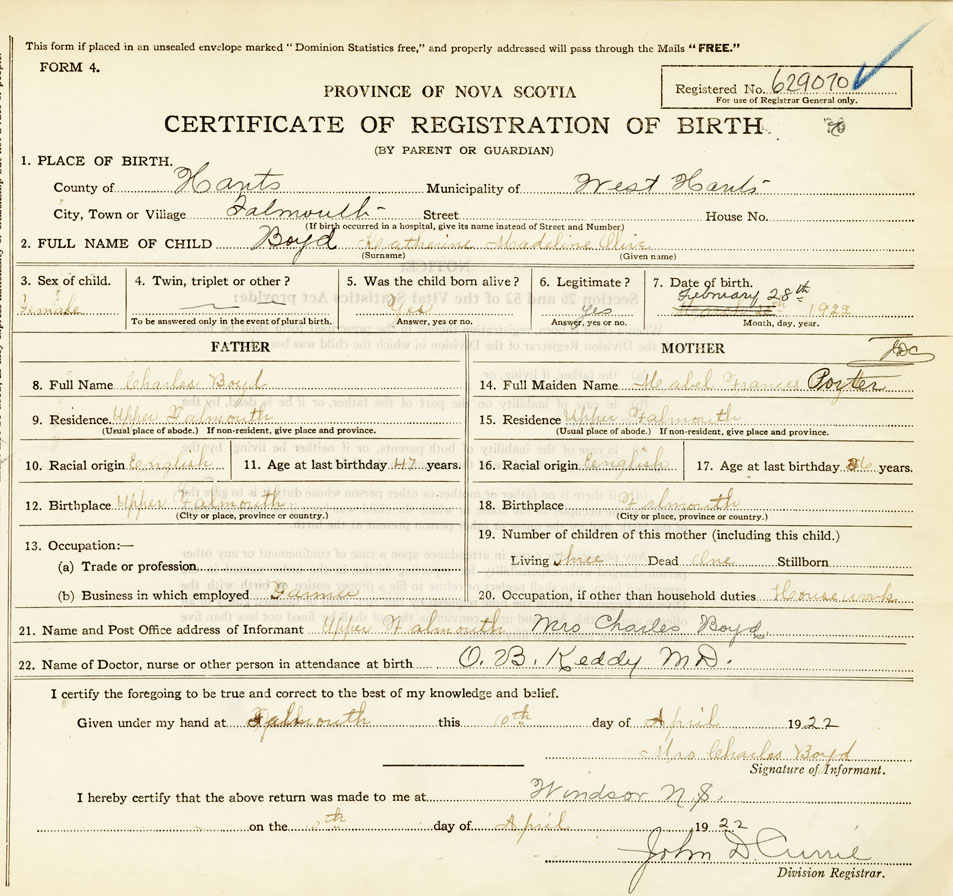 This form if placed in an unsealed envelope marked "Dominion Statistics free," and properly addressed will pass through the Mails "FREE."
FORM 4.
Registered No. 629070
For use of Registrar General only.
PROVINCE OF NOVA SCOTIA
CERTIFICATE OF REGISTRATION OF BIRTH
(BY PARENT OR GUARDIAN)
1. PLACE OF BIRTH.
County of Hants Municipality of West Hants
City, Town or Village Falmouth Street House No.
(If birth occurred in a hospital, give its name instead of Street and Number)
2. FULL NAME OF CHILD Boyd Katherine Madeline Olive
(Surname) (Given name)
3. Sex of child. 4. Twin, triplet or other? 5. Was the child born alive? 6. Legitimate? 7. Date of birth.
February 28th
Female Yes yes 1922
To be answered only in the event of plural birth. Answer, yes or no. Answer, yes or no. Month, day, year.
FATHER MOTHER JDC
8. Full Name Charles Boyd 14. Full Maiden Name Mabel Frances Poyter
9. Residence Upper Falmouth 15. Residence Upper Falmouth
(Usual place of abode.) If non-resident, give place and province. (Usual place of abode.) If non-resident, give place and province.
10. Racial origin English 11. Age at last birthday 47 years. 16. Racial origin English 17. Age at last birthday 36 years.
12. Birthplace Upper Falmouth 18. Birthplace Falmouth
(City or place, province or country.) (City or place, province or country.)
13. Occupation:— 19. Number of children of this mother (including this child.)
(a) Trade or profession Living three Dead One Stillborn
(b) Business in which employed Farmer 20. Occupation, if other than household duties Housework
21. Name and Post Office address of Informant Upper Falmouth Mrs Charles Boyd
22. Name of Doctor, nurse or other person in attendance at birth O. B. Keddy M.D.
I certify the foregoing to be true and correct to the best of my knowledge and belief.
Given under my hand at Falmouth this 10th day of April 1922
Mrs Charles Boyd
Signature of Informant.
I hereby certify that the above return was made to me at Windsor N.S.
on the 10th day of April 1922
John D. Currie
Division Registrar.